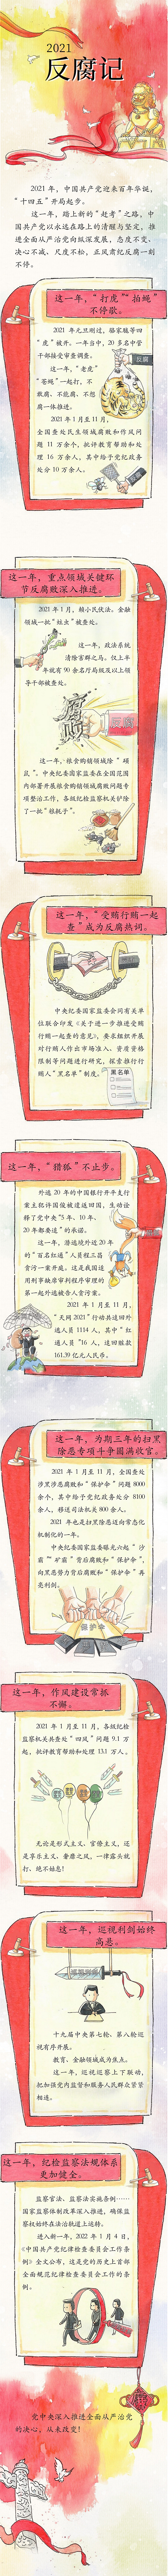 2021
反腐记
2021 年，中国共产党迎来百年华诞，
“十四五”开局起步。
这一年，踏上新的“赶考”之路，中
国共产党以永远在路上的清醒与坚定，推
进全面从严治党向纵深发展，态度不变、
决心不减、尺度不松，正风肃纪反腐一刻
不停。
这一年，“打虎”“拍蝇”
不停歇。
2021 年元旦刚过，骆家駹等四
“虎”被开。一年当中，20 多名中管
干部接受审查调查。
这一年，“老虎”
“苍蝇”一起打，不
敢腐、不能腐、不想
腐一体推进。
2021 年 1 月至 11 月，
全国查处民生领域腐败和作风问
题 11 万余个，批评教育帮助和处
理 16 万余人，其中给予党纪政务
处分 10 万余人。
这一年，重点领域关键环
节反腐败深入推进。
2021 年 1 月，赖小民伏法。金融
领域一批“蛀虫”被查处。
这一年，政法系统
清除害群之马。仅上半
年就有 90 余名厅局级及以上领
导干部被查处。
腐败
反腐
这一年，粮食购销领域除“硕
鼠”。中央纪委国家监委在全国范围
内部署开展粮食购销领域腐败问题专
项整治工作，各级纪检监察机关铲除
了一批“粮耗子”。
这一年，“受贿行贿一起
查”成为反腐热词。
中央纪委国家监委会同有关单
位联合印发《关于进一步推进受贿
行贿一起查的意见》，要求组织开展
对行贿人作出市场准入、资质资格
限制等问题进行研究，探索推行行
贿人“黑名单”制度。
黑名单
这一年，“猎狐”不止步。
外逃 20 年的中国银行开平支行
案主犯许国俊被遣返回国，生动诠
释了党中央“5 年、10 年、
20 年都要追”的承诺。
这一年，潜逃境外近 20 年
的“百名红通”人员程三昌
贪污一案开庭。这是我国适
用刑事缺席审判程序审理的
第一起外逃被告人贪污案。
2021 年 1 月至 11 月，
“天网 2021”行动共追回外
逃人员 1114 人，其中“红
通人员”16 人，追回赃款
161.39 亿元人民币。
这一年，为期三年的扫黑
除恶专项斗争圆满收官。
2021 年 1 月至 11 月，全国查处
涉黑涉恶腐败和“保护伞”问题 8000
余个，其中给予党纪政务处分 8100
余人，移送司法机关 800 余人。
2021 年也是扫黑除恶迈向常态化
机制化的一年。
中央纪委国家监委曝光六起“沙
霸”“矿霸”背后腐败和“保护伞”，
向黑恶势力背后腐败和“保护伞”再
亮利剑。
保护伞
这一年，作风建设常抓
不懈。
2021 年 1 月至 11 月，各级纪检
监察机关共查处“四风”问题 9.1 万
起，批评教育帮助和处理 13.1 万人。
无论是形式主义、官僚主义，还
是享乐主义、奢靡之风，一律露头就
打，绝不姑息！
这一年，巡视利剑始终
高悬。
十九届中央第七轮、第八轮巡
视有序开展。
教育、金融领域成为焦点。
这一年，巡视巡察上下联动，
把加强党内监督和服务人民群众紧密
相连。
这一年，纪检监察法规体系
更加健全。
监察官法、监察法实施条例……
国家监察体制改革深入推进，确保监
察权始终在法治轨道上运转。
进入新一年，2022 年 1 月 4 日，
《中国共产党纪律检查委员会工作条
例》全文公布，这是党的历史上首部
全面规范纪律检查委员会工作的条
例。
党中央深入推进全面从严治党
的决心，从未改变！